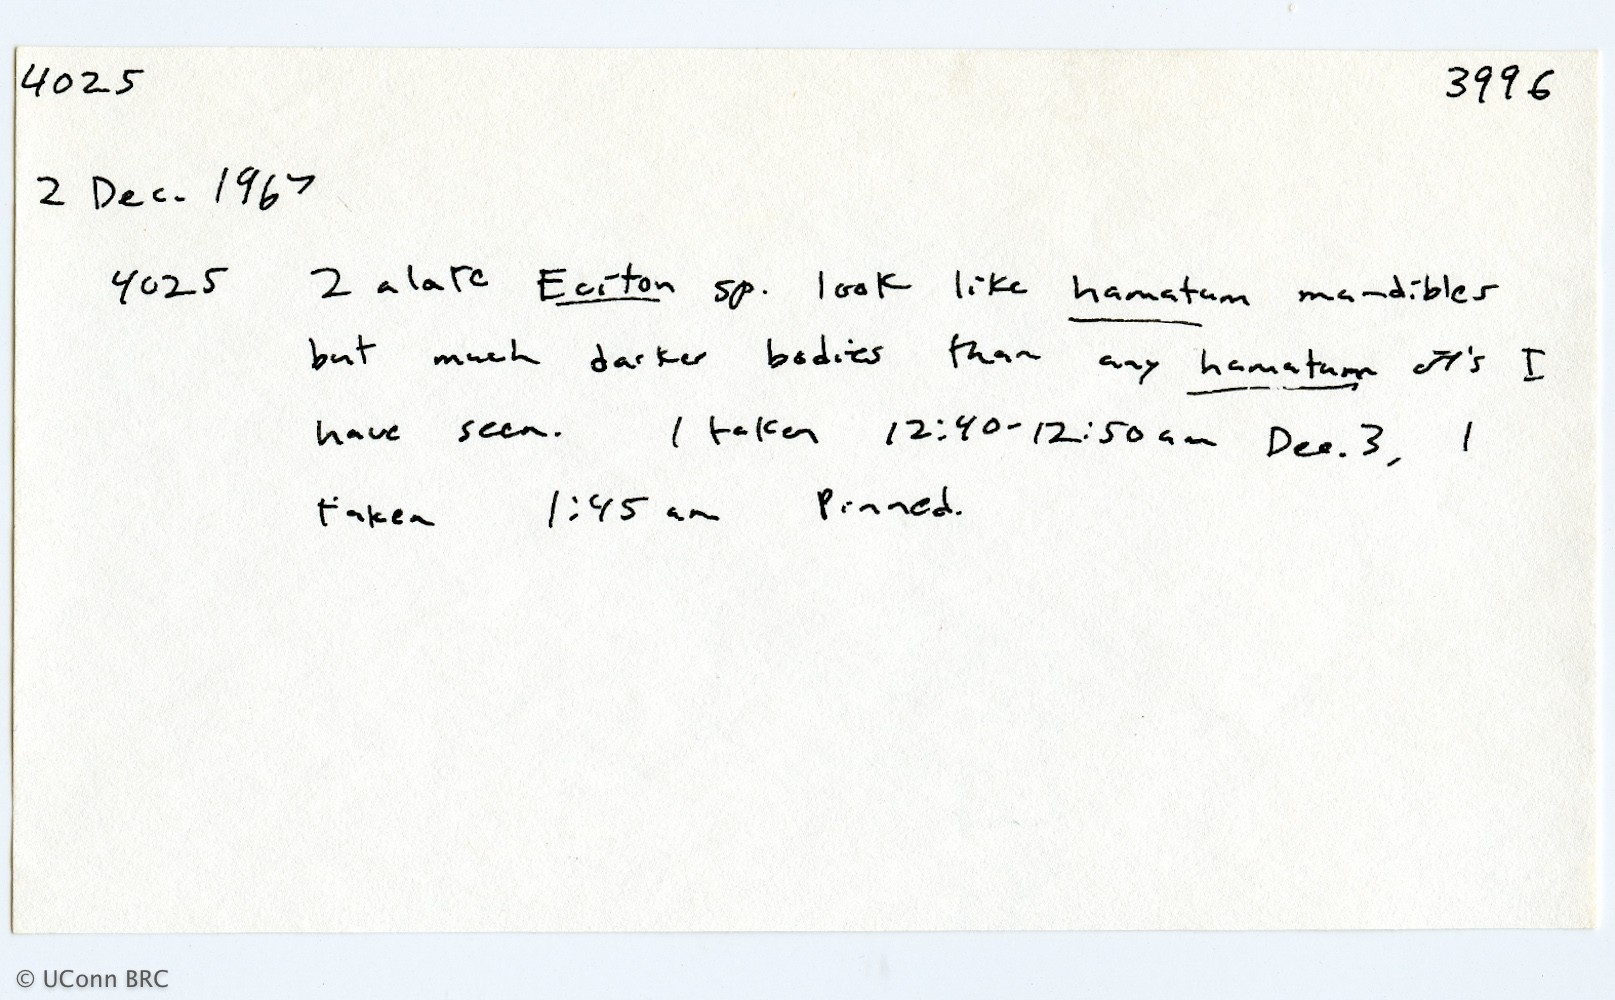 4025 3996
2 Dec. 1967
4025 2 alate Eciton sp. look like hamatum mandibles
but much darker bodies than any hamatum ♂♂'s I
have seen. 1 taken 12:40-12:50 am Dec. 3, 1
taken 1:45 am Pinned.
© UConn BRC